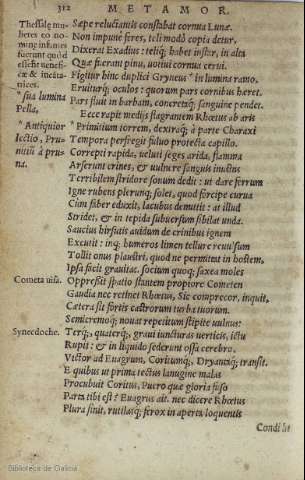 312 METAMOR.
Thessalę mu-
lieres eo no-
mine infames
fuerunt quòd
essent venefi-
cæ & incãta-
trices.
"sua lumina
Pella,
"Antiquior
lectio, Pru-
nitiũ à pru-
na.
Cometa uisa.
Synecdoche.
Sæpe reluctantis constabat cornua Lunæ.
Non impunè feres, teli modò copia detur,
Dixerat Exadius: teliq; habet instar, in alta
Quæ fuerant pinu, uotiui cornua cerui.
Figitur hinc duplici Gryneus "in lumina ramo,
Eruiturq; oculos: quorum pars cornibus hæret,
Pars fluit in barbam, concretaq; sanguine pendet.
Ecce rapit medijs flagrantem Rhœtus ab aris
"Primitium torrem, dextraq; à parte Charaxi
Tempora perfregit fuluo protecta capillo.
Correpti rapida, ueluti seges arida, flamma
Arserunt crines, & uulnere sanguis inustus
Terribilem stridore sonum dedit: ut dare ferrum
Igne rubens plerunq; solet, quod forcipe curua
Cùm faber eduxit, lacubus demittit: at illud
Stridet, & in tepida submersum sibilat unda.
Saucius hirsutis auidum de crinibus ignem
Excutit: inq; humeros limen tellure reuulsum
Tollit onus plaustri, quod ne permittat in hostem,
Ipsa facit grauitas. socium quoq; saxea moles
Oppressit spatio stantem propiore Cometen
Gaudia nec retinet Rhœtus, Sic comprecor, inquit,
Cætera sit fortis castrorum turba tuorum.
Semicremoq; nouat repetitum stipite uulnus:
Terq;, quaterq;, graui iuncturas uerticis, ictu
Rupit: & in liquido sederunt ossa cerebro.
Victor ad Euagrum, Coritumq;, Dryantaq; transit.
E quibus ut prima tectus lanugine malas
Procubuit Coritus, Puero quæ gloria fuso
Parta tibi est? Euagrus ait. nec dicere Rhœtus
Plura sinit, rutilasq; ferox in aperta loquentis
Condidit
Biblioteca de Galicia